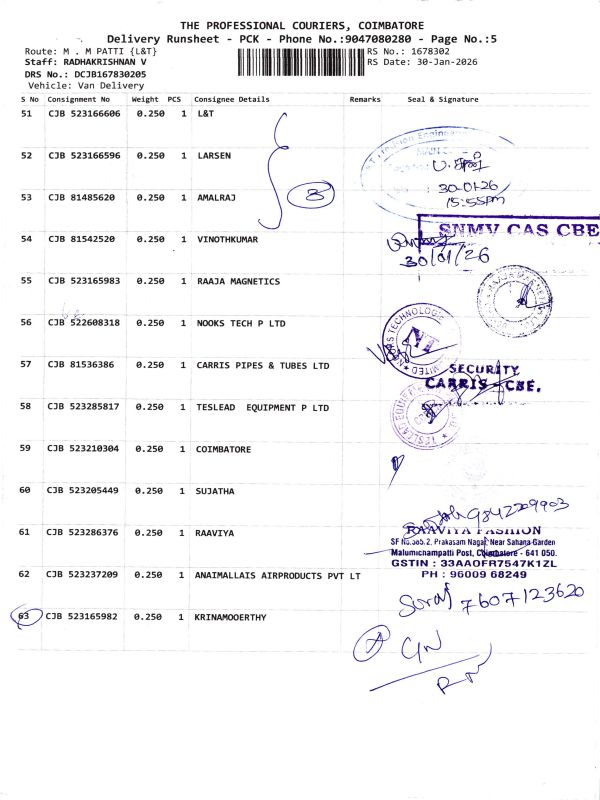 THE PROFESSIONAL COURIERS, COIMBATORE
Delivery Runsheet - PCK - Phone No.:9047080280 - Page No.:5
Route: M . M PATTI {L&T}
RS No.: 1678302
Staff: RADHAKRISHNAN V
RS Date: 30-Jan-2026
DRS No.: DCJB167830205
Vehicle: Van Delivery
S No Consignment No Weight PCS Consignee Details Remarks Seal & Signature
51 CJB 523166606 0.250 1 L&T
52 CJB 523166596 0.250 1 LARSEN
53 CJB 81485620 0.250 1 AMALRAJ
3
30-01-26
15:55pm
SNMV CAS CBE
54 CJB 81542520 0.250 1 VINOTHKUMAR
30/01/26
55 CJB 523165983 0.250 1 RAAJA MAGNETICS
56 CJB 522608318 0.250 1 NOOKS TECH P LTD
NT
57 CJB 81536386 0.250 1 CARRIS PIPES & TUBES LTD
SECURITY
CARRIS - CBE.
58 CJB 523285817 0.250 1 TESLEAD EQUIPMENT P LTD
59 CJB 523210304 0.250 1 COIMBATORE
60 CJB 523205449 0.250 1 SUJATHA
9842209903
61 CJB 523286376 0.250 1 RAAVIYA
RAAVIYA FASHION
SF No.565.2, Prakasam Nagar, Near Sahana Garden
Malumichampatti Post, Coimbatore - 641 050.
GSTIN : 33AAOFR7547K1ZL
PH : 96009 68249
62 CJB 523237209 0.250 1 ANAIMALLAIS AIRPRODUCTS PVT LT
Suraj 7607123620
63 CJB 523165982 0.250 1 KRINAMOOERTHY